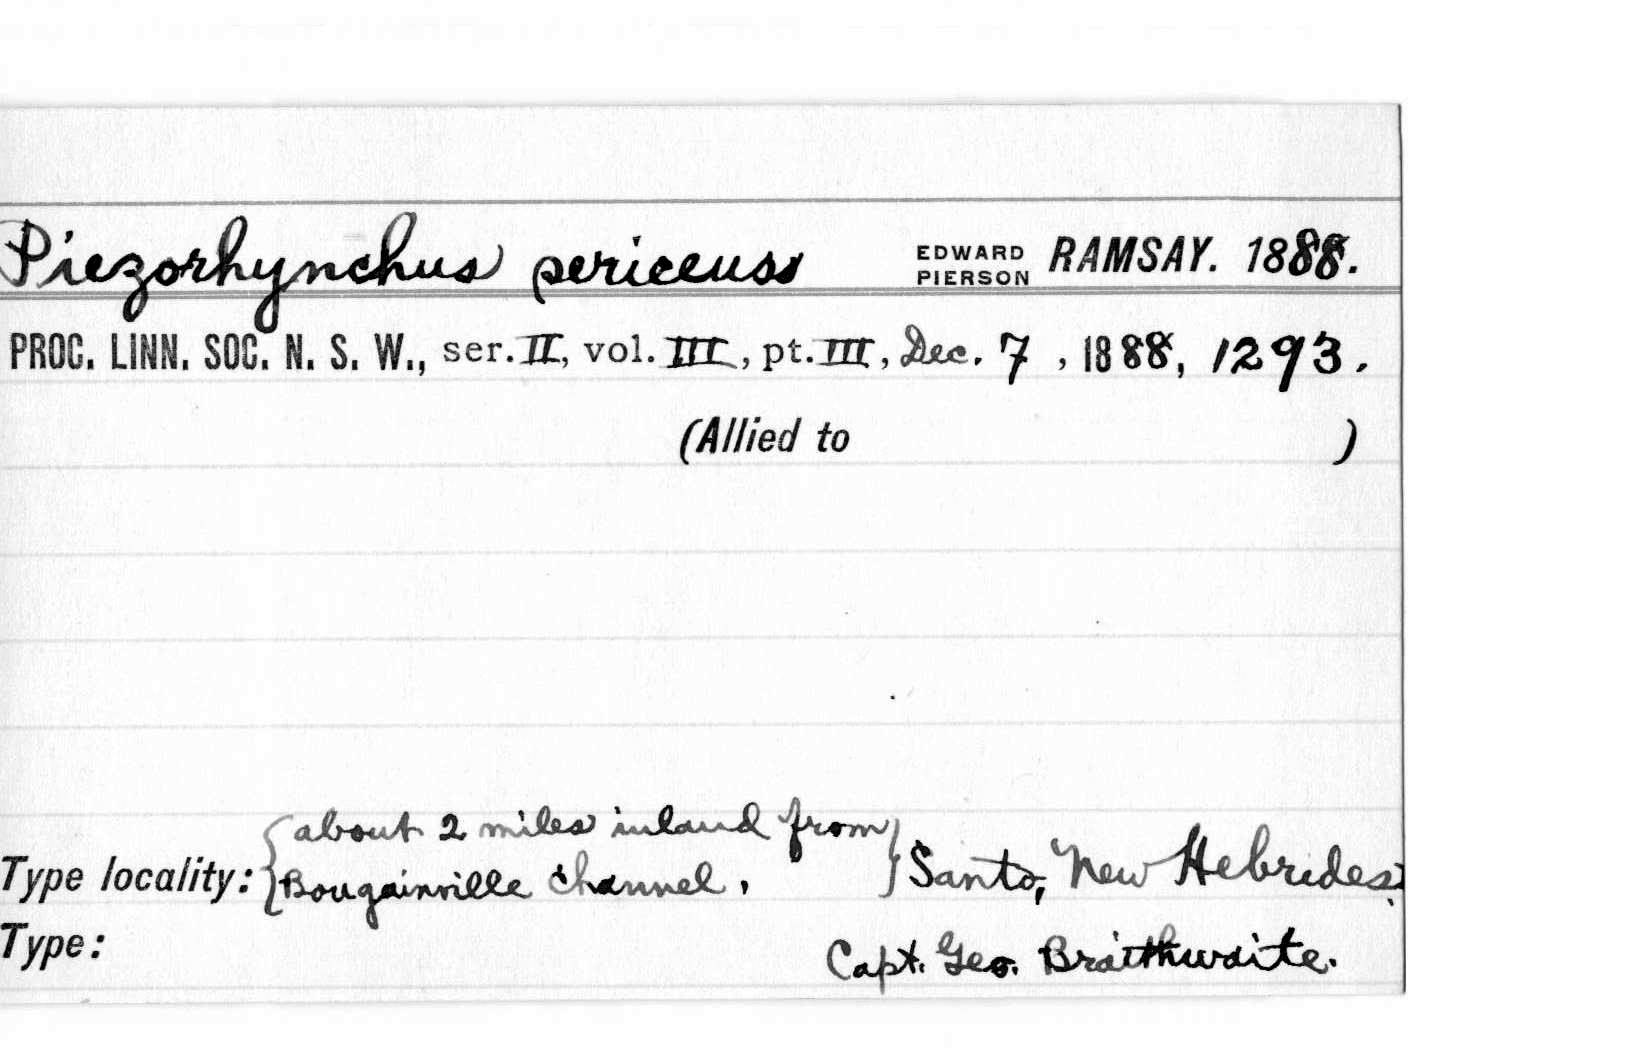 Piezorhynchus sericeus EDWARD PIERSON RAMSAY. 1888.
PROC. LINN. SOC. N. S. W., ser. II, vol. III, pt. III, Dec. 7, 1888, 1293.
(Allied to )
about 2 miles inland from
Type locality: Bougainville channel. Santo, New Hebrides.
Type: Capt. Geo. Braithwaite.